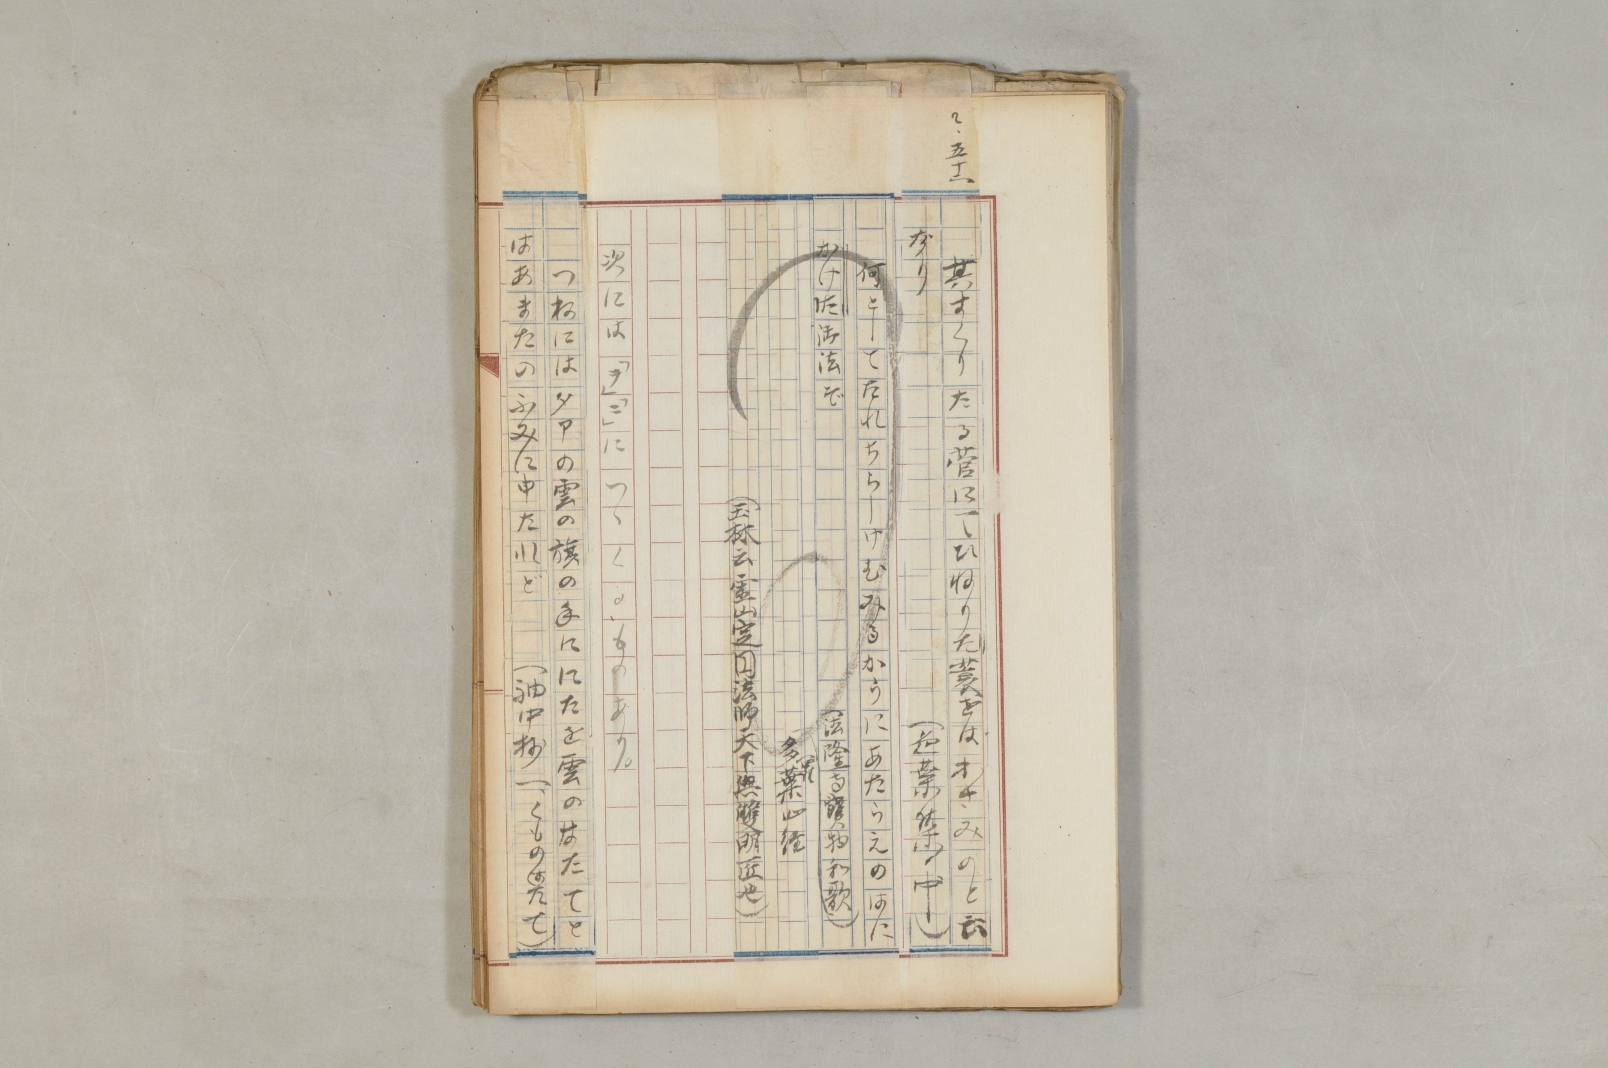 其すくりたる菅にてひねりた蓑をはオサ、みのと云
なり
何としてたれちらしけむみるかうにあたらえのはに
かけた御法ぞ
(法隆寺寶物和歌)
多羅葉心経
(玉林云霊山定円法師天下無雙明匠也)
次には「ヲ」「ニ」につゞくるものあり。
つねには夕アの雲の旗の手ににたを雲のはたてと
はあまたのふみに申たれど
(袖中抄 一、くものはたて)